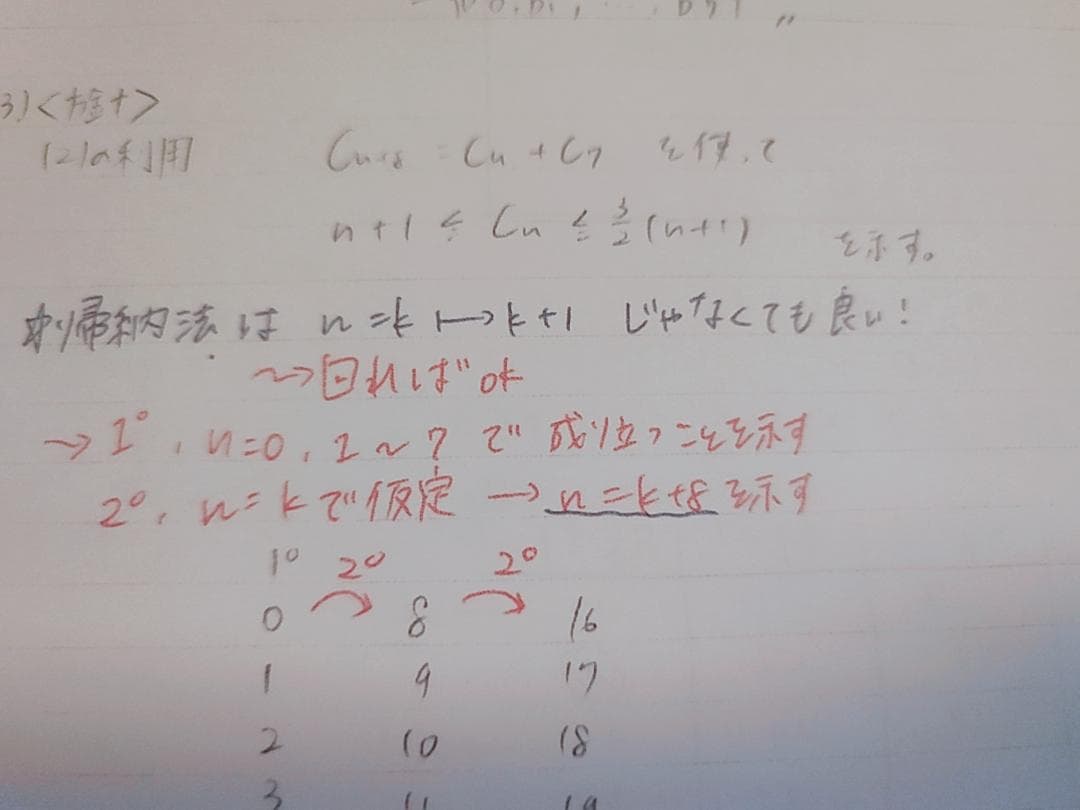 3)<検討>
(2)の利用 Cn+8 = Cn + C7 を使って
n+1 ≦ Cn ≦ 3/2 (n+1) を示す。
帰納法は n=k ↦ k+1 じゃなくても良い!
~→回ればOK
→ 1°, n=0, 1~7 で 成り立つことを示す
2°, n=kで仮定 → n=k+8を示す
1° 2° 2°
0 8 16
1 9 17
2 10 18
3 11 19